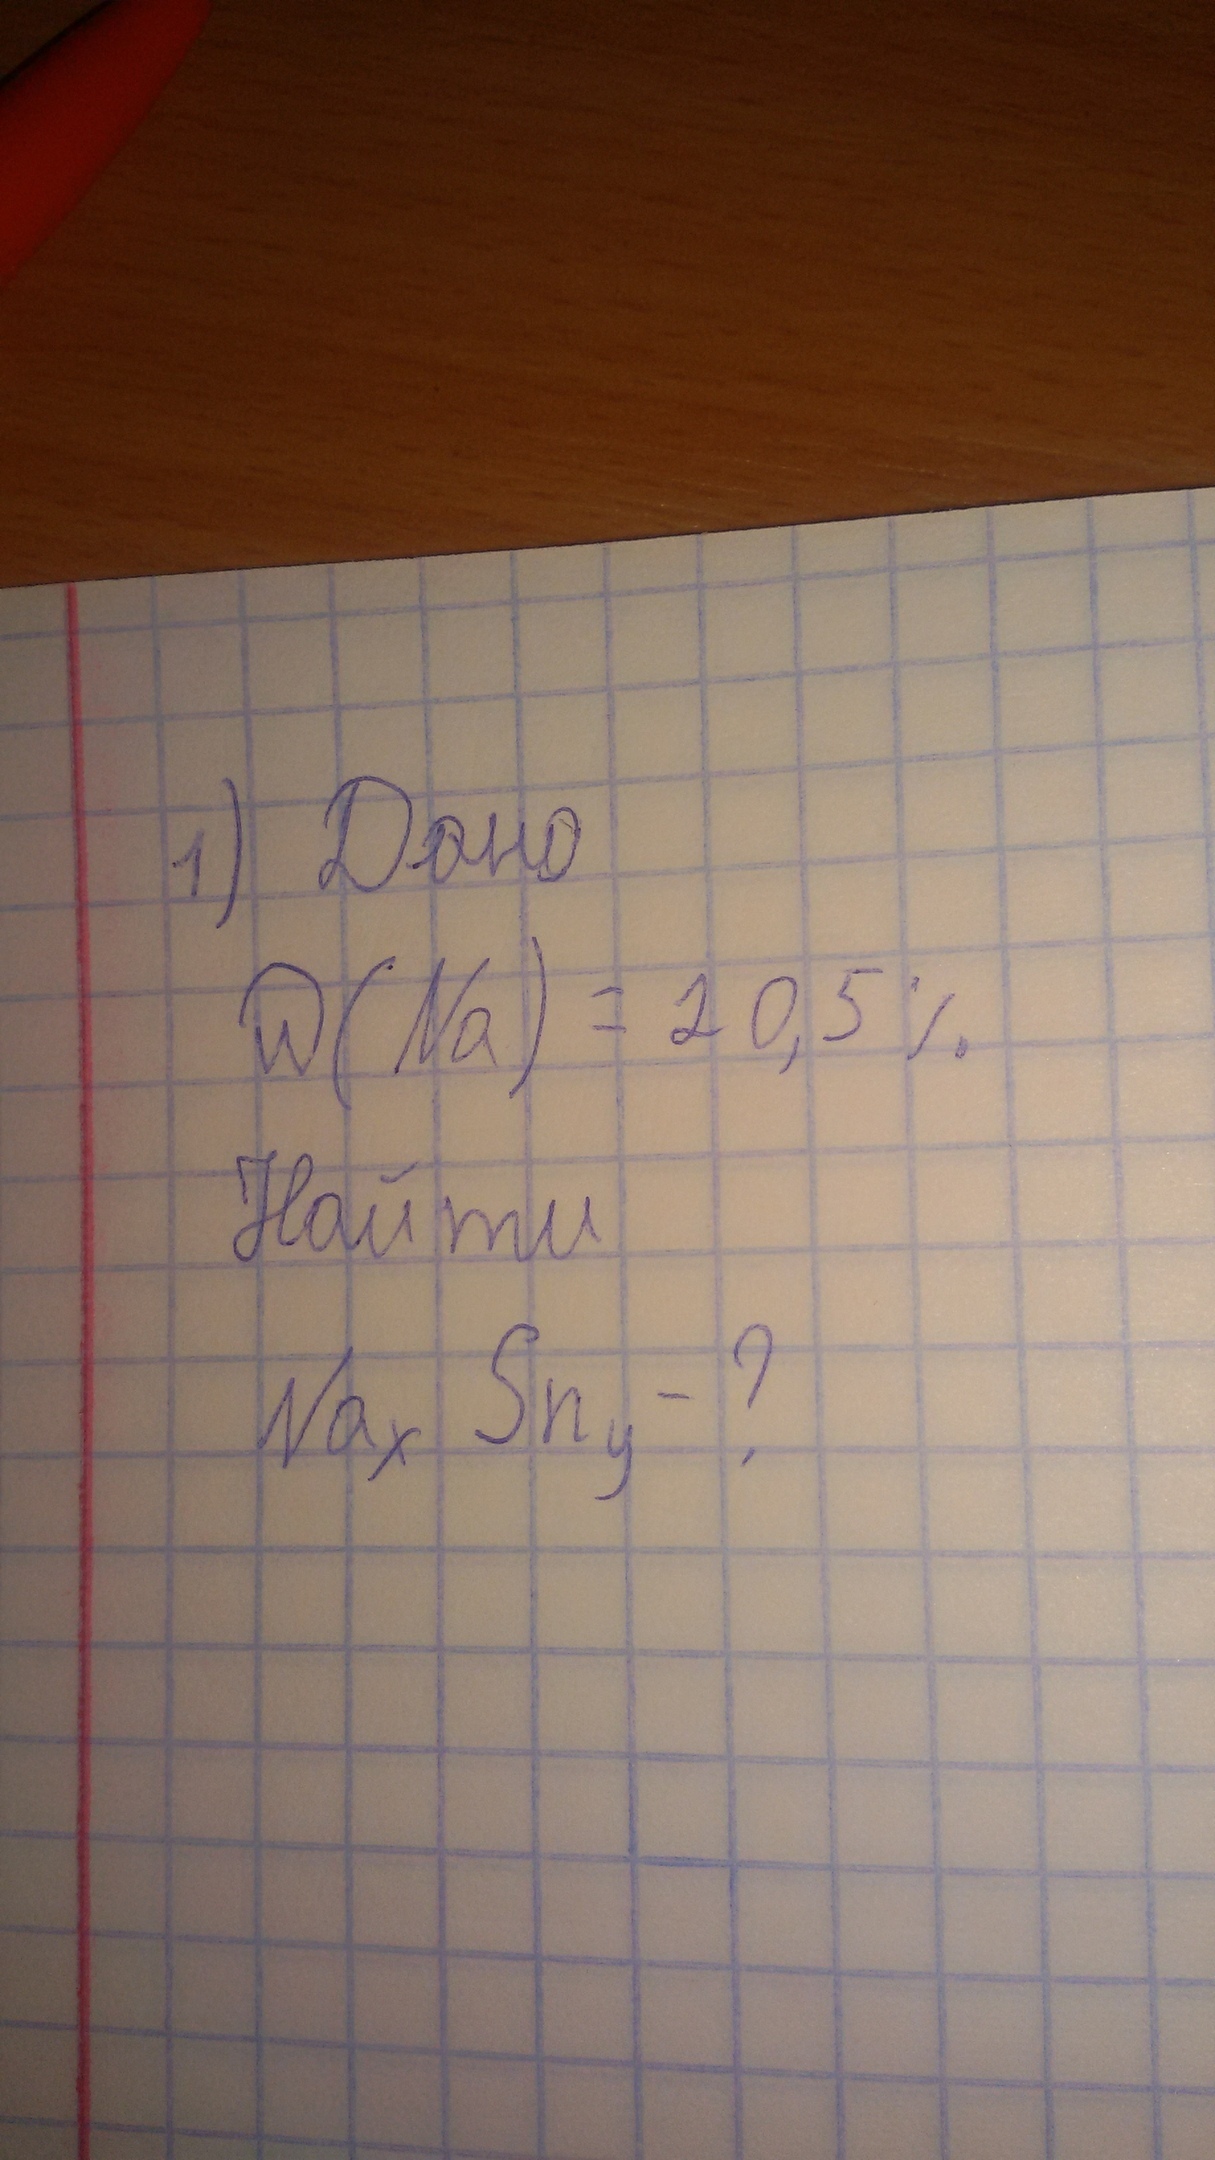 1) Дано
W(Na) = 20,5 %
Найти
Naₓ Snᵧ - ?